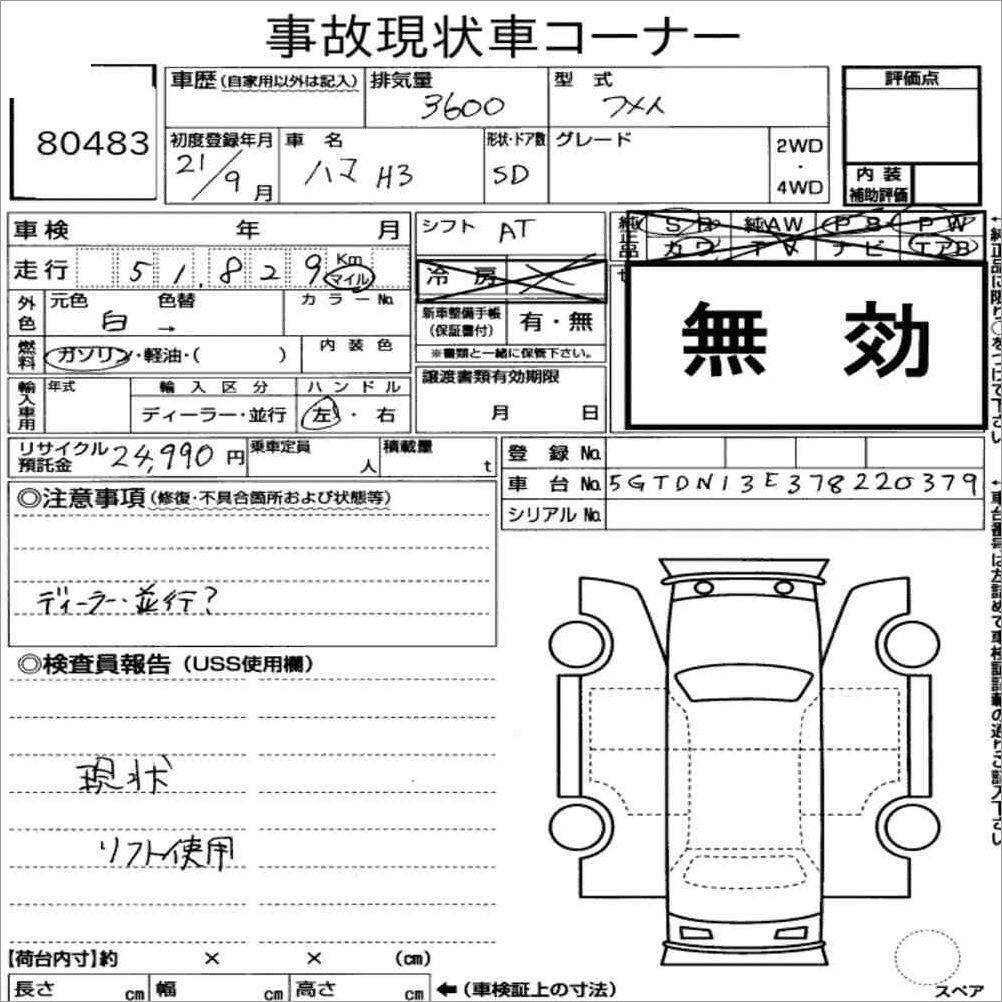 事故現状車コーナー
80483
車歴(自家用以外は記入) 排気量 3600 型 式 フメイ
評価点
初度登録年月 21/9 月 車 名 ハマ H3 形状・ドア数 5D グレード 2WD・4WD
内装補助評価
車検 年 月 シフト AT
純正品 SR 純AW PS PW
カワ TV ナビ エアB
走行 51,829 Km マイル
冷房
無効
外色 元色 白 色替 → カラーNo.
新車整備手帳(保証書付) 有・無
※書類と一緒に保管下さい。
燃料 ガソリン・軽油・( ) 内装色
譲渡書類有効期限
月 日
輸入車用 年式 輸入区分 ハンドル
ディーラー・並行 左・右
リサイクル預託金 24,990円 乗車定員 人 積載量 t
登 録 No.
車 台 No. 5GTDN13E378220379
シリアル No.
◎注意事項(修復・不具合箇所および状態等)
ディーラー・並行?
◎検査員報告(USS使用欄)
現状
リフト使用
【荷台内寸】約 × × (cm)
長さ cm 幅 cm 高さ cm ←(車検証上の寸法)
スペア